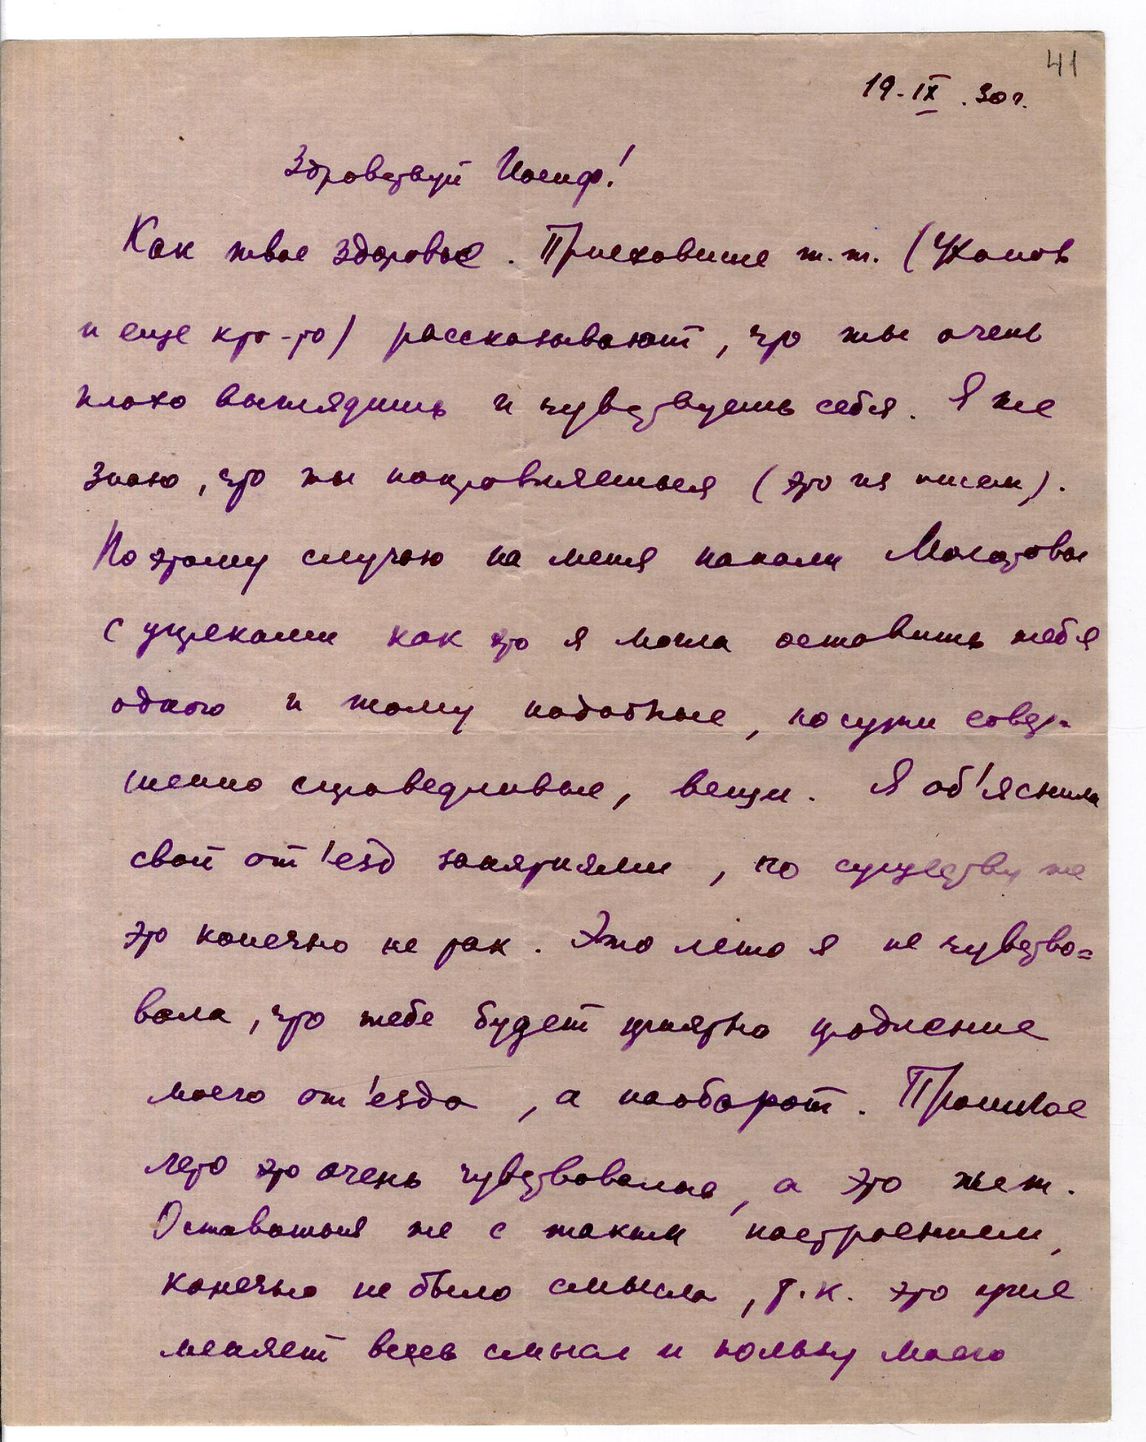 41
19-IX.30г.
Здравствуй Иосиф!
Как твое здоровье. Приехавшие т.т. (Уханов
и еще кто-то) рассказывают, что ты очень
плохо выглядишь и чувствуешь себя. Я же
знаю, что ты поправляешься (это из писем).
По этому случаю на меня напали Молотовы
с упреками как это я могла оставить тебя
одного и тому подобные, по сути совер-
шенно справедливые, вещи. Я об'яснила
свой от'езд занятиями, по существу же
это конечно не так. Это лето я не чувство=
вала, что тебе будет приятно продление
моего от'езда, а наоборот. Прошлое
лето это очень чувствовалось, а это нет.
Оставаться же с таким настроением,
конечно не было смысла, т.к. это уже
меняет весь смысл и пользу моего